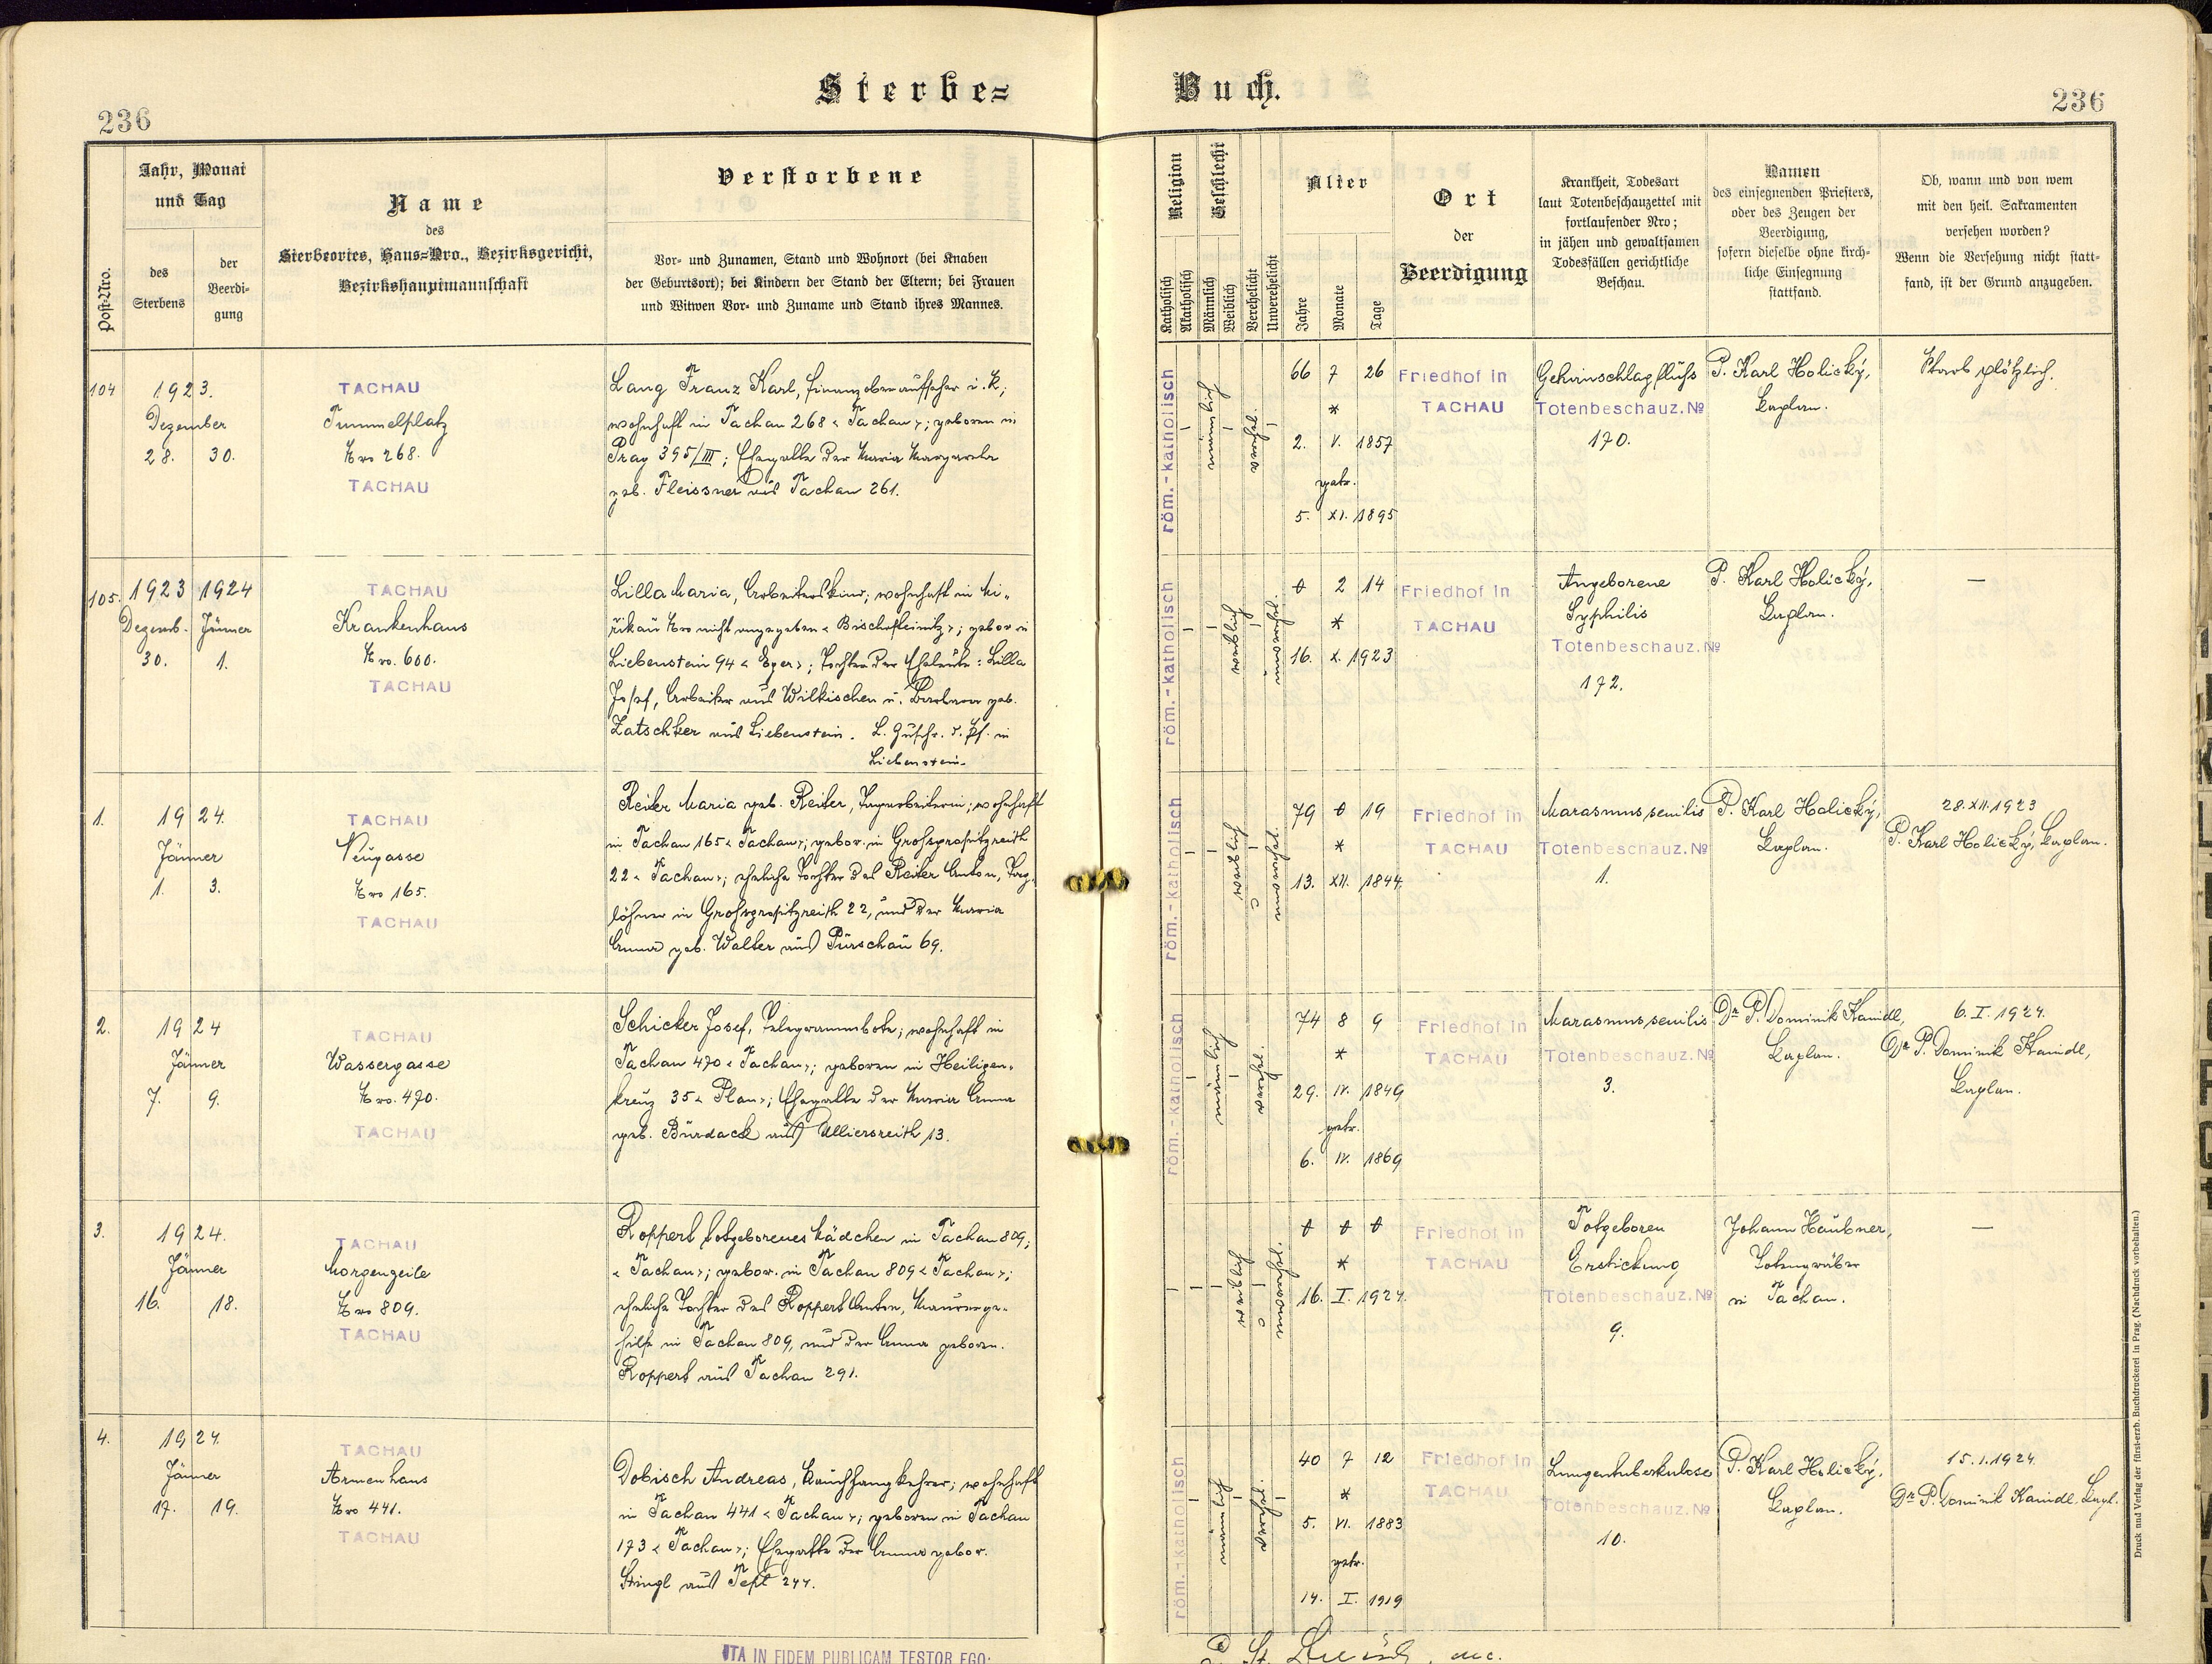 Sterbe=
Buch.
236
236
Post-Nro.
Jahr, Monat
und Tag
des
Sterbens
der
Beerdi-
gung
Name
des
Sterbeortes, Haus=Nro., Bezirksgericht,
Bezirkshauptmannschaft
Verstorbene
Vor- und Zunamen, Stand und Wohnort (bei Knaben
der Geburtsort); bei Kindern der Stand der Eltern; bei Frauen
und Witwen Vor- und Zuname und Stand ihres Mannes.
Religion
Katholisch
Akatholisch
Geschlecht
Männlich
Weiblich
Verehelicht
Unverehelicht
Alter
Jahre
Monate
Tage
Ort
der
Beerdigung
Krankheit, Todesart
laut Totenbeschauzettel mit
fortlaufender Nro;
in jähen und gewaltsamen
Todesfällen gerichtliche
Beschau.
Namen
des einsegnenden Priesters,
oder des Zeugen der
Beerdigung,
sofern dieselbe ohne kirch-
liche Einsegnung
stattfand.
Ob, wann und von wem
mit den heil. Sakramenten
versehen worden?
Wenn die Versehung nicht statt-
fand, ist der Grund anzugeben.
104
1923.
Dezember
28. 30.
TACHAU
Tummelplatz
Nro 268.
TACHAU
Lang Franz Karl, Finanzoberaufseher i. R.;
wohnhaft in Tachau 268 < Tachau >; geboren in
Prag 395/III; Ehegatte der Maria Margareta
geb. Fleissner aus Tachau 261.
röm.-katholisch
männlich
verehel.
66 7 26
*
2. V. 1857
getr.
5. XI. 1895
Friedhof in
TACHAU
Gehirnschlagfluss
Totenbeschauz. No
170.
P. Karl Holický,
Kaplan.
Starb plötzlich.
105.
1923 1924
Dezemb. Jänner
30. 1.
TACHAU
Krankenhaus
Nro. 600.
TACHAU
Lilla Maria, Arbeiterskind; wohnhaft in Mi-
řikau Nro nicht angegeben < Bischofteinitz >; gebor. in
Liebenstein 94 < Eger >; Tochter der Eheleute: Lilla
Josef, Arbeiter aus Wilkischen u. Barbara geb.
Zatschker aus Liebenstein. L. Zuschr. d. Pf. in
Liebenstein.
röm.-katholisch
weiblich
unverehel.
0 2 14
*
16. X. 1923
Friedhof in
TACHAU
Angeborene
Syphilis
Totenbeschauz. No
172.
P. Karl Holický,
Kaplan.
—
1.
1924.
Jänner
1. 3.
TACHAU
Neugasse
Nro 165.
TACHAU
Reiter Maria geb. Reiter, Tagarbeiterin; wohnhaft
in Tachau 165 < Tachau >; gebor. in Grossgropitzreith
22 < Tachau >; eheliche Tochter des Reiter Anton, Tag-
löhner in Grossgropitzreith 22, und der Maria
Anna geb. Walter aus Pürschau 69.
röm.-katholisch
weiblich
unverehel.
79 0 19
*
13. XII. 1844.
Friedhof in
TACHAU
Marasmus senilis
Totenbeschauz. No
1.
P. Karl Holický,
Kaplan.
28. XII. 1923
P. Karl Holický, Kaplan.
2.
1924
Jänner
7. 9.
TACHAU
Wassergasse
Nro. 470.
TACHAU
Schicker Josef, Telegrammbote; wohnhaft in
Tachau 470 < Tachau >; geboren in Heiligen-
kreuz 35 < Plan >; Ehegatte der Maria Anna
geb. Bürdack aus Ulliersreith 13.
röm.-katholisch
männlich
verehel.
74 8 9
*
29. IV. 1849
getr.
6. IV. 1869
Friedhof in
TACHAU
Marasmus senilis
Totenbeschauz. No
3.
Dr. P. Dominik Kaindl,
Kaplan.
6. I. 1924.
Dr. P. Dominik Kaindl,
Kaplan.
3.
1924.
Jänner
16. 18.
TACHAU
Morgenzeile
Nro 809.
TACHAU
Roppert totgeborenes Mädchen in Tachau 809;
< Tachau >; gebor. in Tachau 809 < Tachau >;
eheliche Tochter des Roppert Anton, Maurerge-
hilfe in Tachau 809, und der Anna geboren.
Roppert aus Tachau 291.
weiblich
unverehel.
0 0 0
*
16. I. 1924.
Friedhof in
TACHAU
Totgeboren
Erstickung
Totenbeschauz. No
9.
Johann Haubner,
Totengräber
in Tachau.
—
4.
1924.
Jänner
17. 19.
TACHAU
Armenhaus
Nro 441.
TACHAU
Dobisch Andreas, Rauchfangkehrer; wohnhaft
in Tachau 441 < Tachau >; geboren in Tachau
173 < Tachau >; Ehegatte der Anna gebor.
Stingl aus Tepl 244.
röm.-katholisch
männlich
verehel.
40 7 12
*
5. VI. 1883
getr.
14. I. 1919
Friedhof in
TACHAU
Lungentuberkulose
Totenbeschauz. No
10.
P. Karl Holický,
Kaplan.
15. 1. 1924.
Dr. P. Dominik Kaindl. Kapl.
ITA IN FIDEM PUBLICAM TESTOR EGO:
Druck und Verlag der fürst-erzb. Buchdruckerei in Prag. (Nachdruck vorbehalten.)